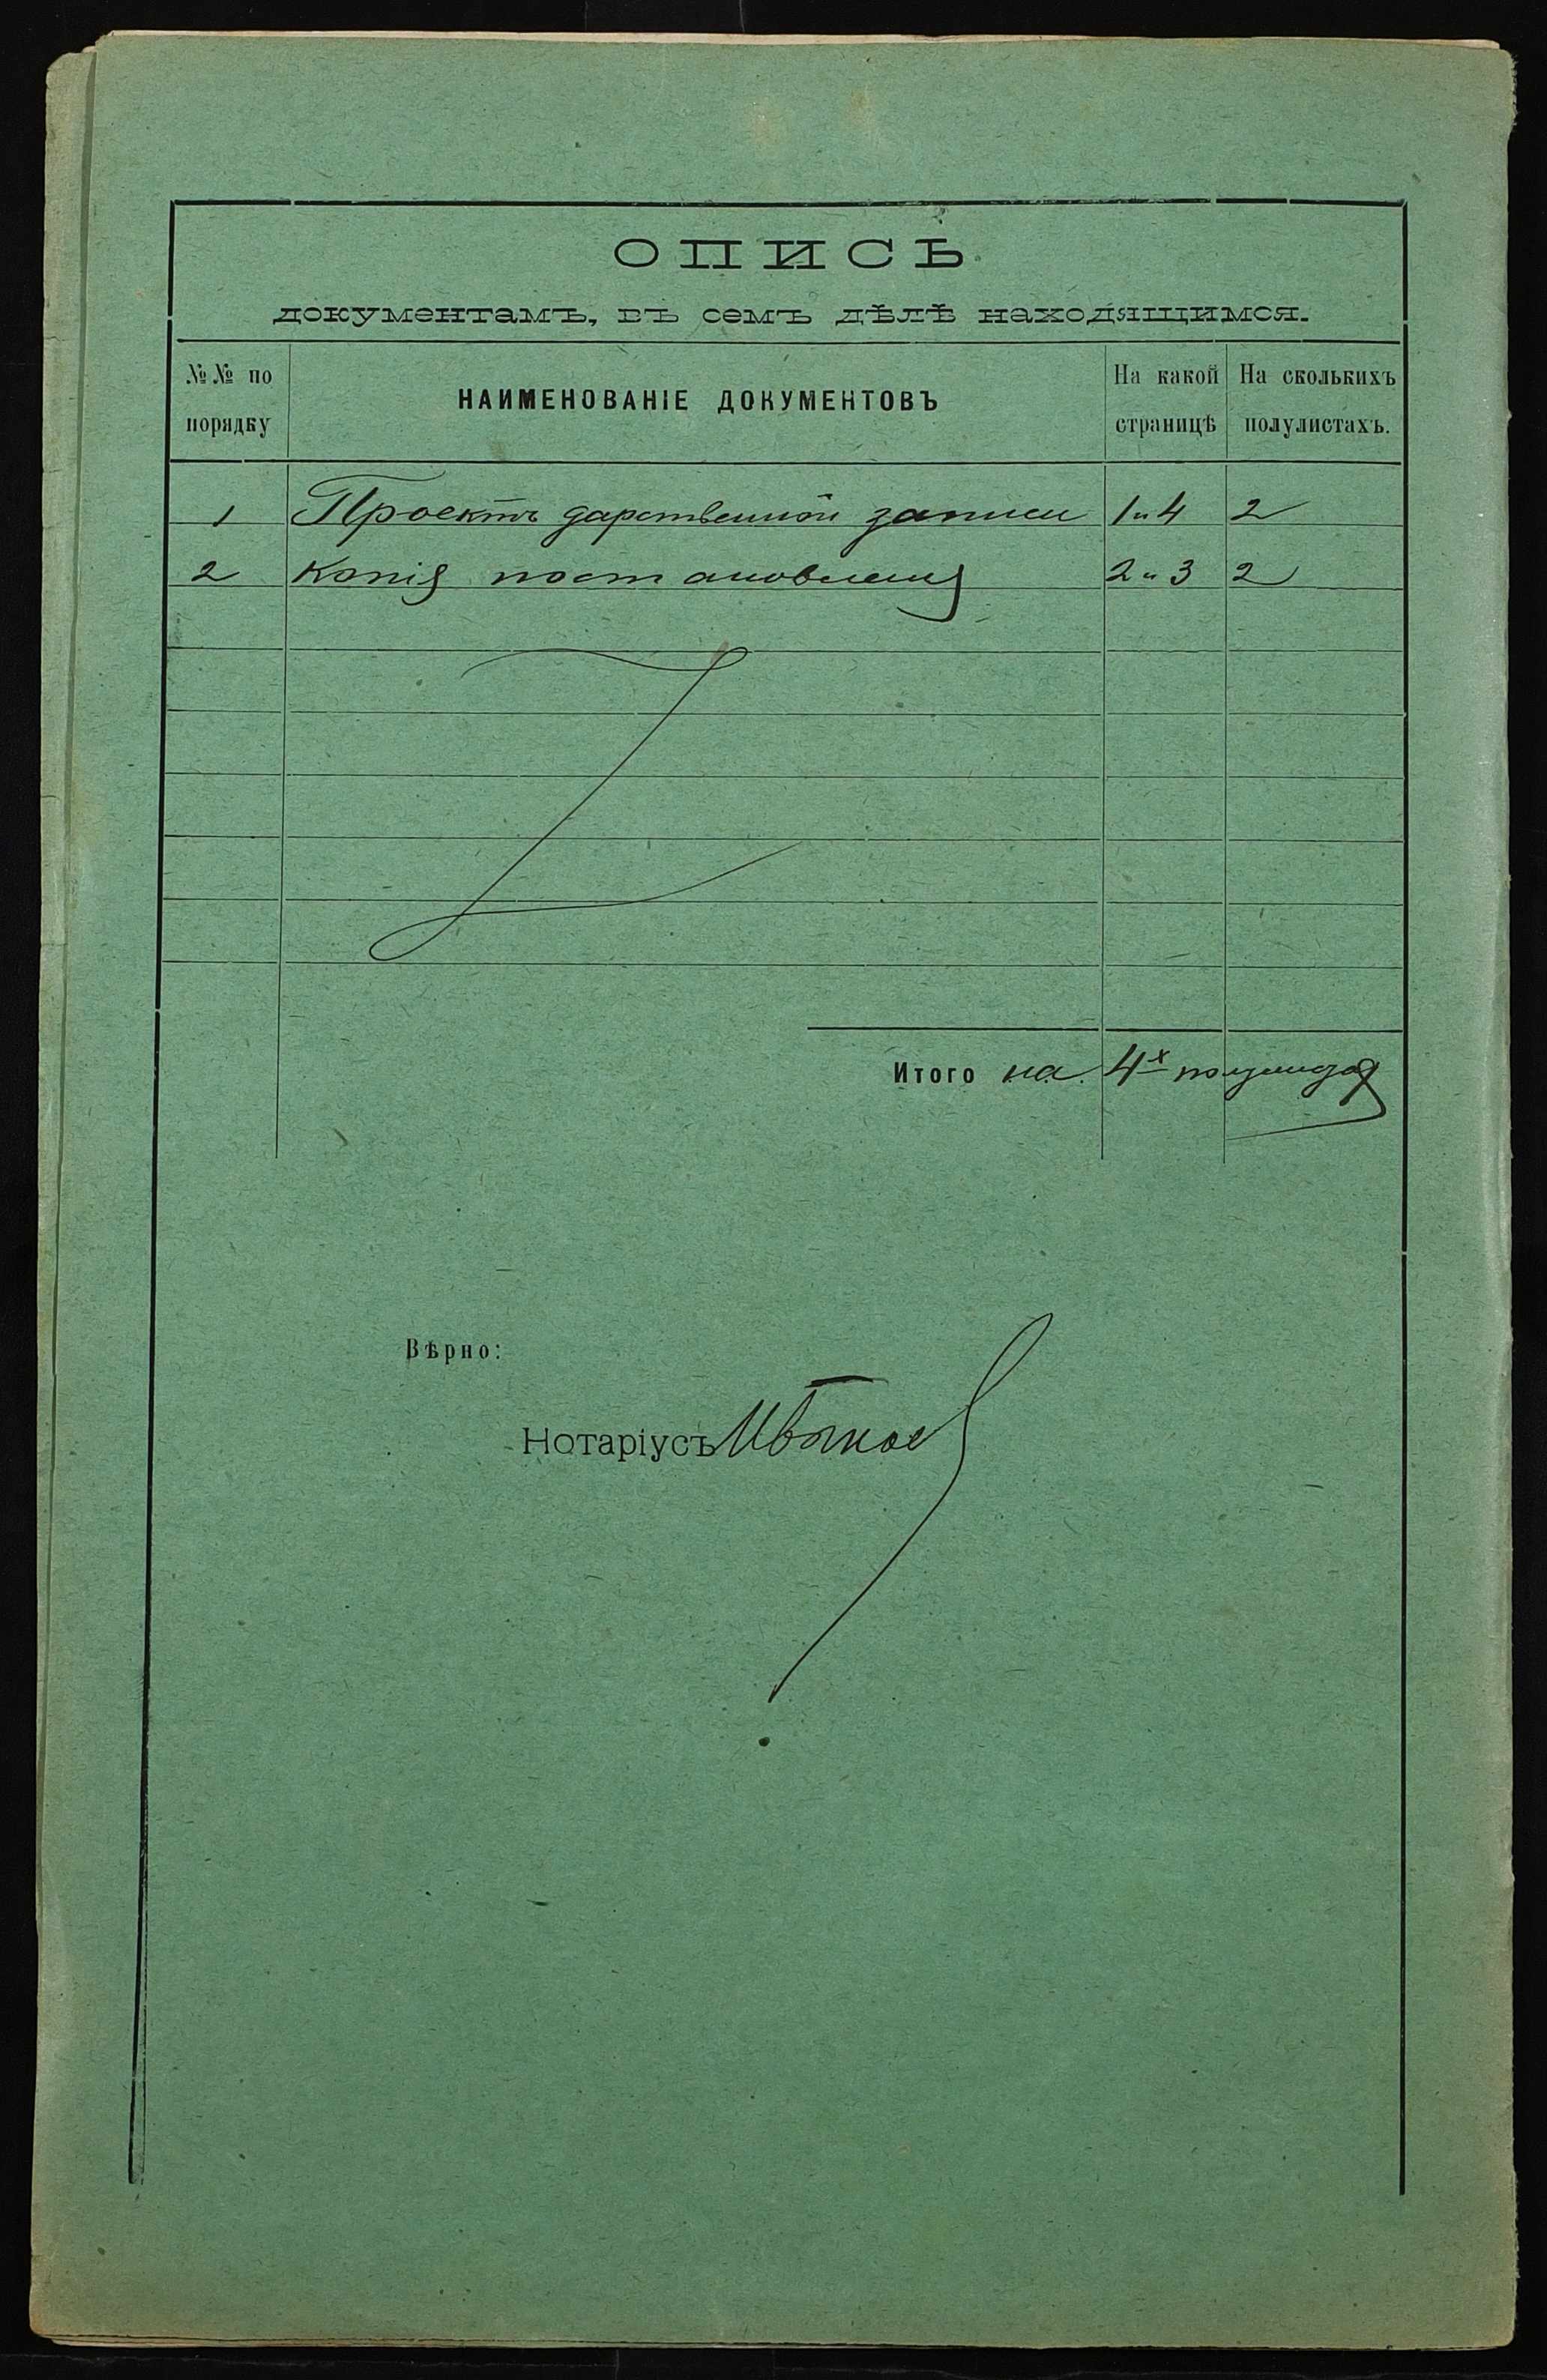 ОПИСЬ
документамъ, въ семъ дѣлѣ находящимся.
№№ по порядку
НАИМЕНОВАНІЕ ДОКУМЕНТОВЪ
На какой страницѣ
На сколькихъ полулистахъ.
1 Проектъ дарственной записи 1 и 4 2
2 Копія постановленія 2 и 3 2
Итого на 4х полулистах
Вѣрно:
Нотаріусъ